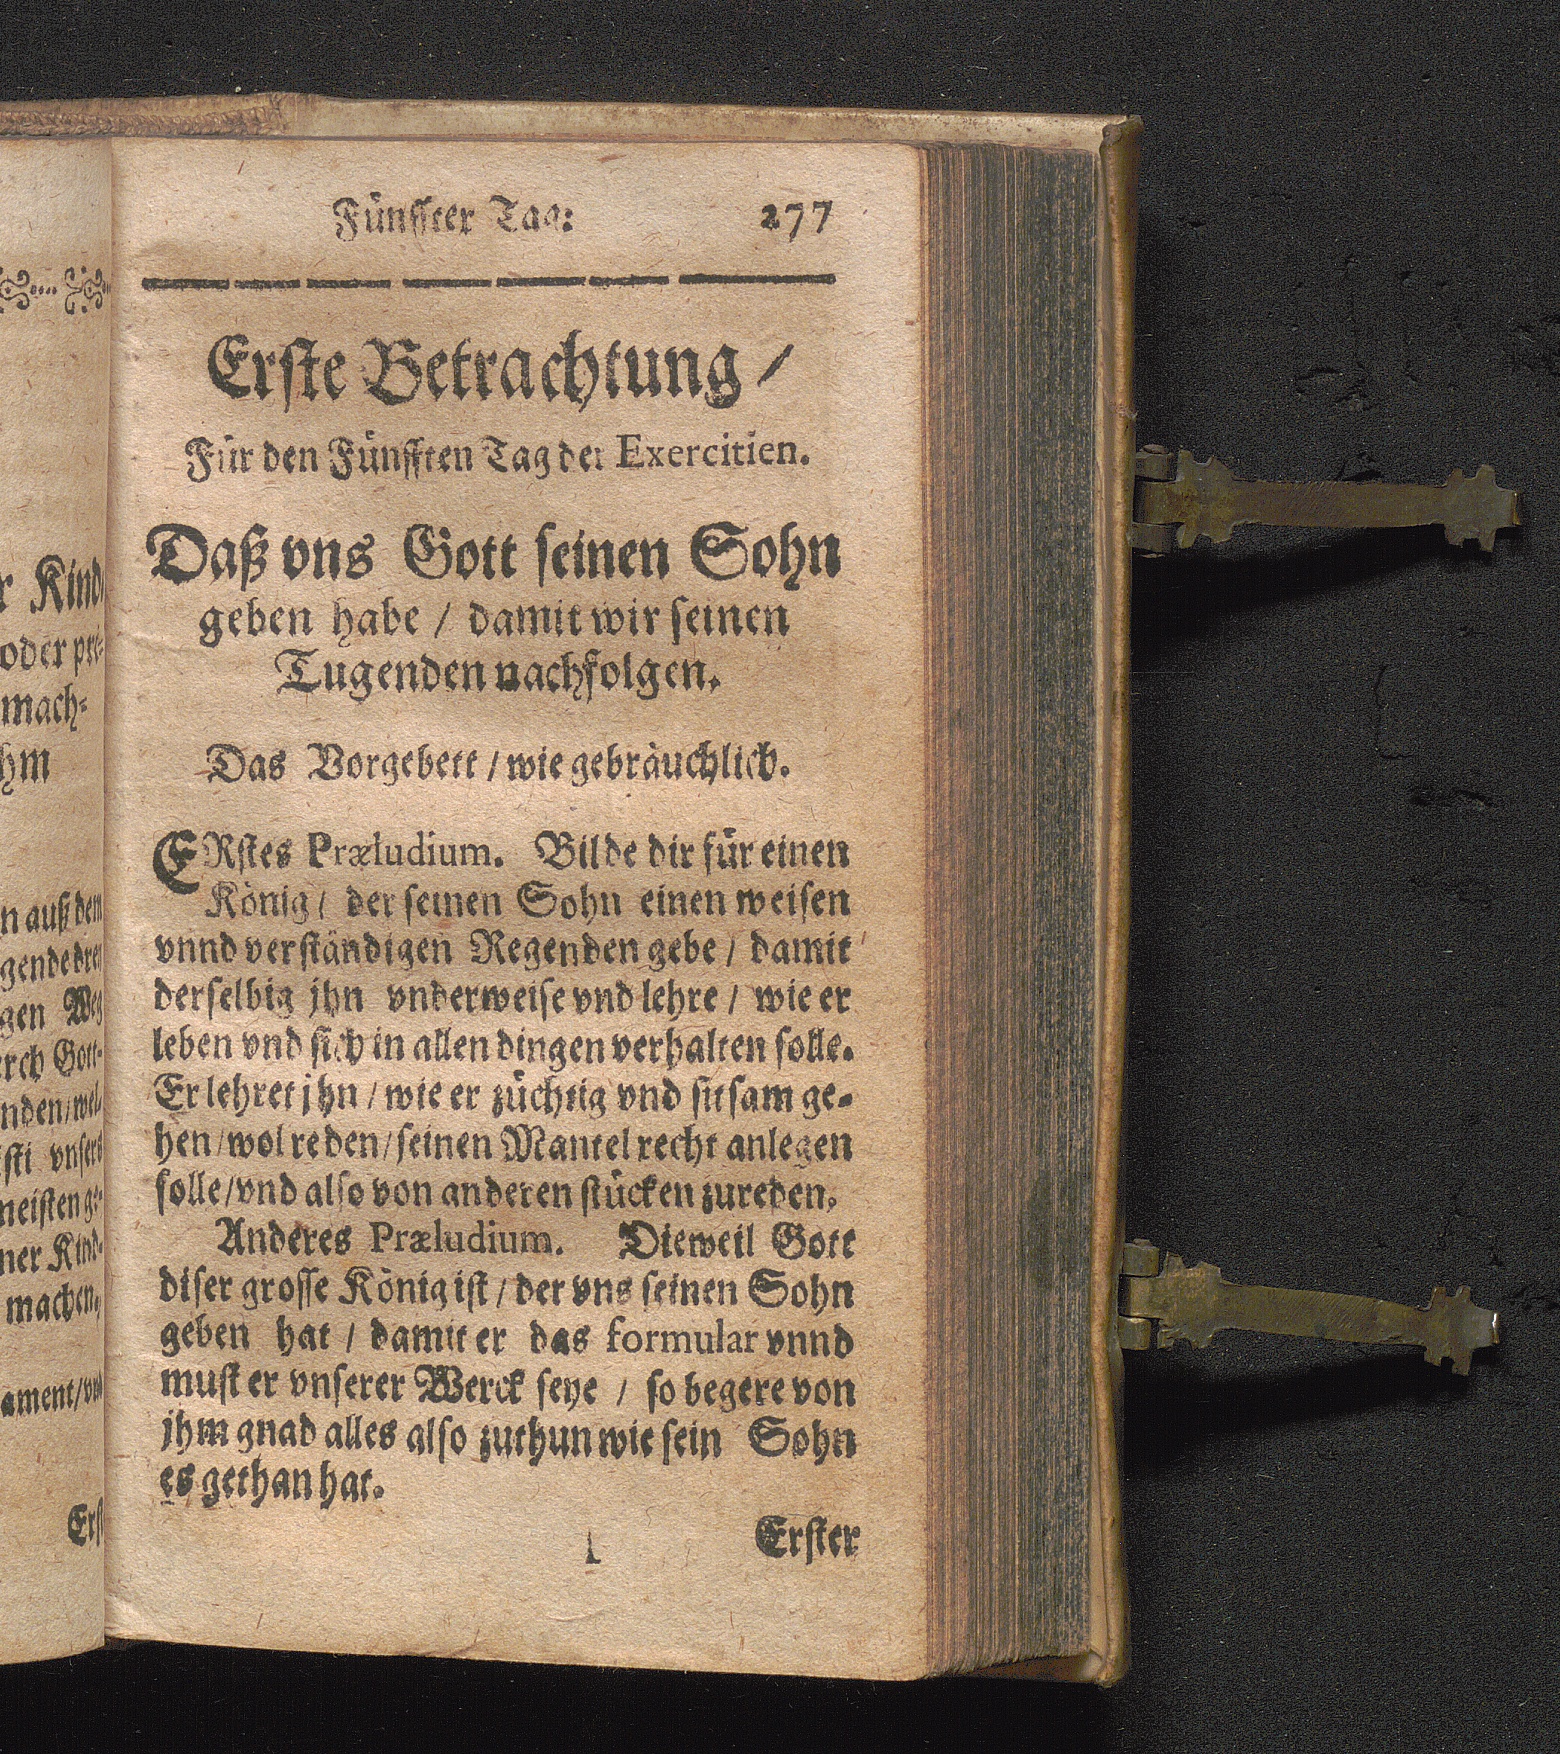 r Kind,
oder pre-
mach-
hm
n auß dem
gende drey
gen Weg
erch Gott-
nden/wel-
isti vnsers
meisten ge-
ner Kind-
machen,
ament/vnd
Erst
Fünffter Tag: 277
Erste Betrachtung /
Für den Fünfften Tag der Exercitien.
Daß vns Gott seinen Sohn
geben habe / damit wir seinen
Tugenden nachfolgen.
Das Vorgebett / wie gebräuchlich.
ERstes Præludium. Bilde dir für einen
König / der seinen Sohn einen weisen
vnnd verständigen Regenden gebe / damit
derselbig jhn vnderweise vnd lehre / wie er
leben vnd sich in allen dingen verhalten solle.
Er lehret jhn / wie er züchtig vnd sitsam ge-
hen/wol reden/seinen Mantel recht anlegen
solle/vnd also von anderen stücken zureden.
Anderes Præludium. Dieweil Gott
diser grosse König ist / der vns seinen Sohn
geben hat / damit er das formular vnnd
muster vnserer Werck seye / so begere von
jhm gnad alles also zuthun wie sein Sohn
es gethan hat.
Erster